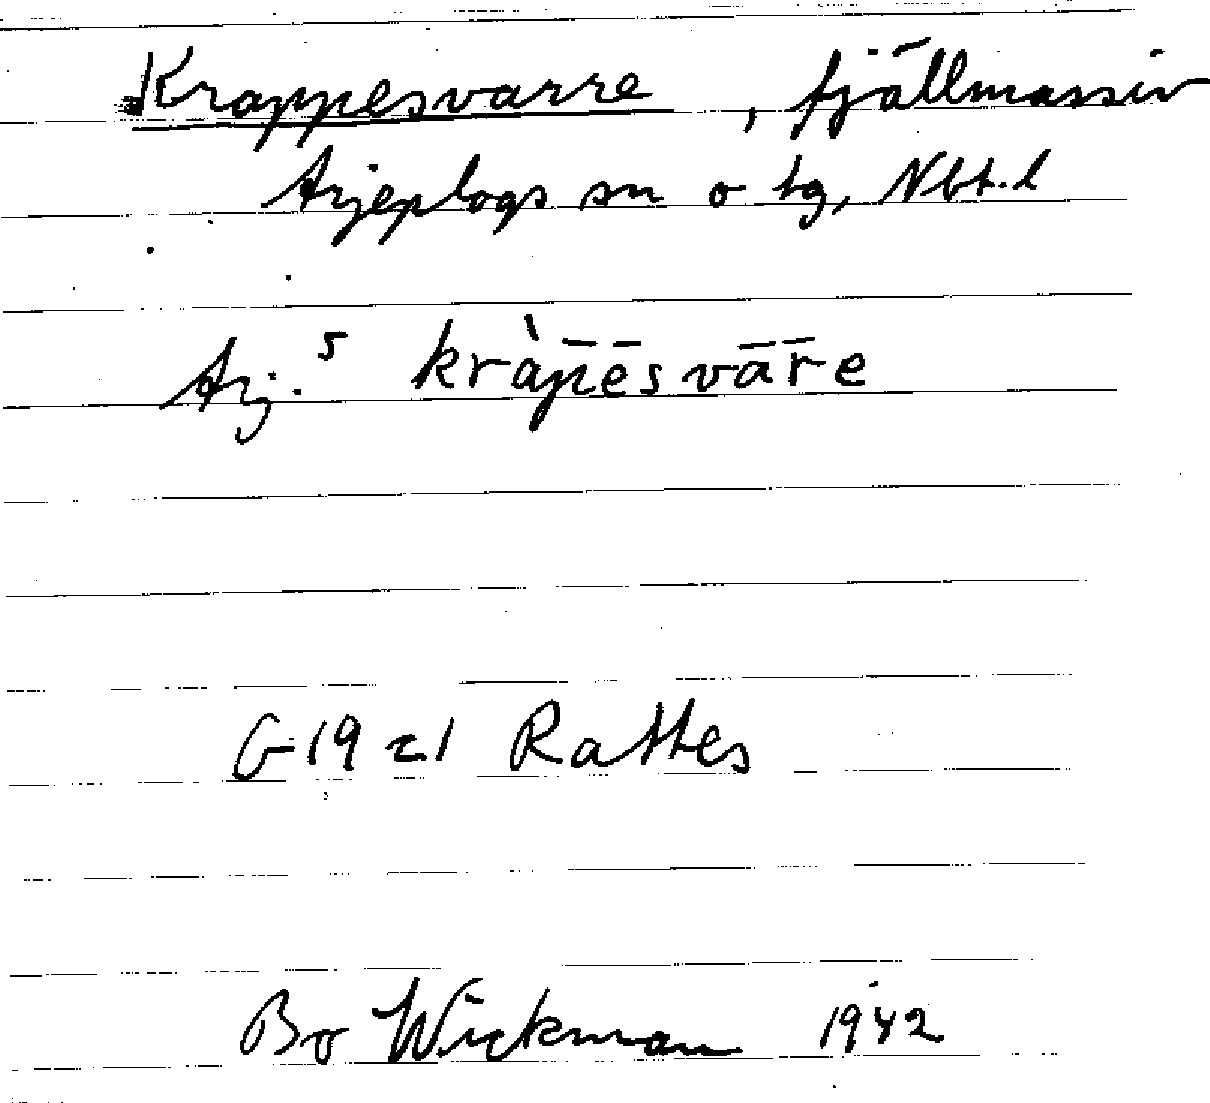 Krappesvarre, fjällmassiv
Arjeplogs sn o tg, Nbt.l
Arj.⁵ kràp̄ēsvār̄e
G 19 c1 Rattes
Bo Wickman 1942